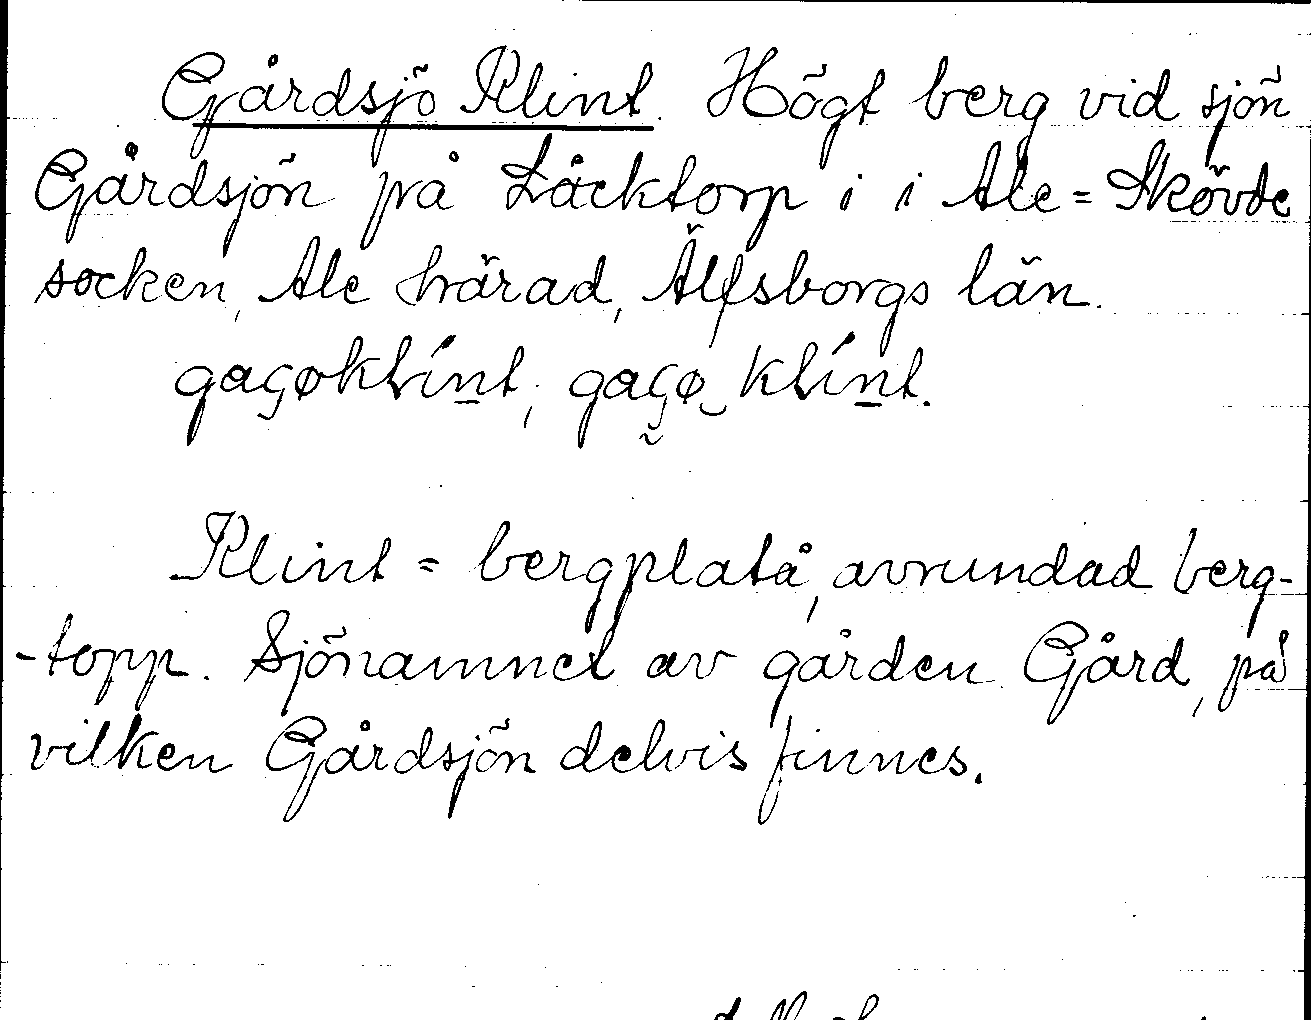 Gårdsjö Klint. Högt berg vid sjön
Gårdsjön på Låcktorp i i Ale=Skövde
socken, Ale härad, Älfsborgs län.
gaçøklínt, gaçø klínt.
Klint = bergplatå, avrundad berg-
-topp. Sjönamnet av gården Gård, på
vilken Gårdsjön delvis finnes.